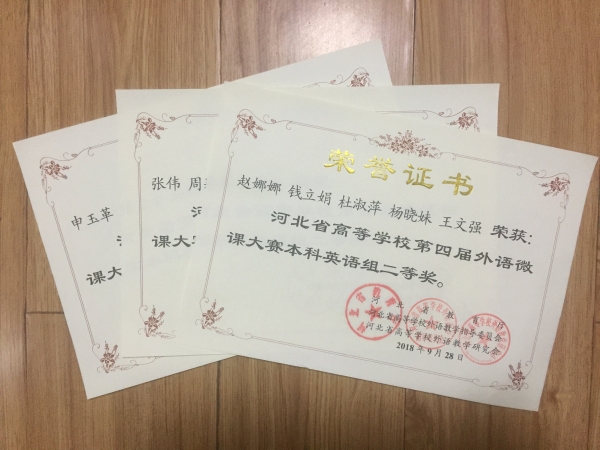 荣誉证书
赵娜娜 钱立娟 杜淑萍 杨晓妹 王文强 荣获：
河北省高等学校第四届外语微
课大赛本科英语组二等奖。
河北省教育厅
河北省高等学校外语教学指导委员会
河北省高等学校外语教学研究会
2018年9月28日
张伟 周
河
课大
申玉革
课大